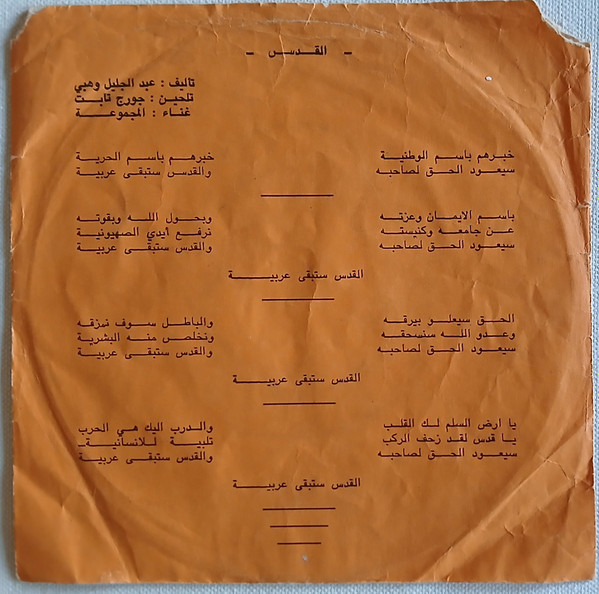 ـ القـدس ـ
تاليف : عبد الجليل وهبي
تلحين : جورج تابت
غناء : المجموعة
خبرهم بأسم الوطنية خبرهم بأسم الحرية
سيعود الحق لصاحبه والقدس ستبقى عربية
بأسم الايمان وعزته وبحول الله وبقوته
عن جامعه وكنيسته نرفع ايدي الصهيونية
سيعود الحق لصاحبه والقدس ستبقى عربية
القدس ستبقى عربية
الحق سيعلو بيرقه والباطل سوف نمزقه
وعدو الله سنسحقه ونخلص منه البشرية
سيعود الحق لصاحبه والقدس ستبقى عربية
القدس ستبقى عربية
يا ارض السلم لك القلب والدرب اليك هي الحرب
يا قدس لقد زحف الركب تلبية للانسانية
سيعود الحق لصاحبه والقدس ستبقى عربية
القدس ستبقى عربية